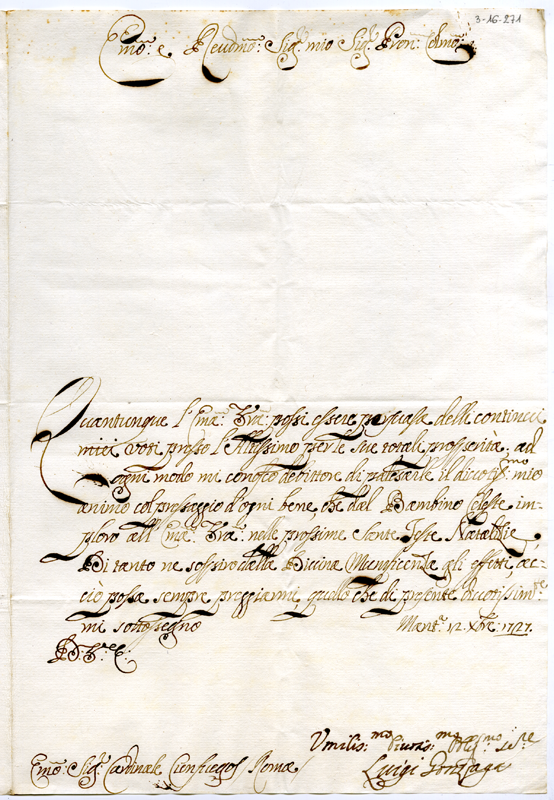 3-16-271
Em̃o: e Reudm̃o: Sigr̃ mio Sigr̃ Pron̄: Colm̃o:
Quantunque l'Em̃a: Vrã: possi essere persuasa delli continui
miei voti presso l'Altissimo per le sue totali prosserità: ad
ogni modo mi conosco debittore di palesarle il diuotis:mo mio
animo col presaggio d'ogni bene, che dal Bambino Celeste im-
ploro all'Em̃a: Vrã: nelle prossime Sante Feste Natalizie,
Di tanto ne sospiro dalla Diuina Munificenza gli effetti, ac-
ciò possa sempre preggiarmi, quello che di presente diuotissim:te
mi sottossegno Mant.a 12 Xbre: 1727.
D: V:ra E:
Vmilis:mo Diuotis:mo Oblig:mo Se:re
Luigi Gonzaga
Em̃o: Sigr̃: Cardinale Cienfuegos Roma